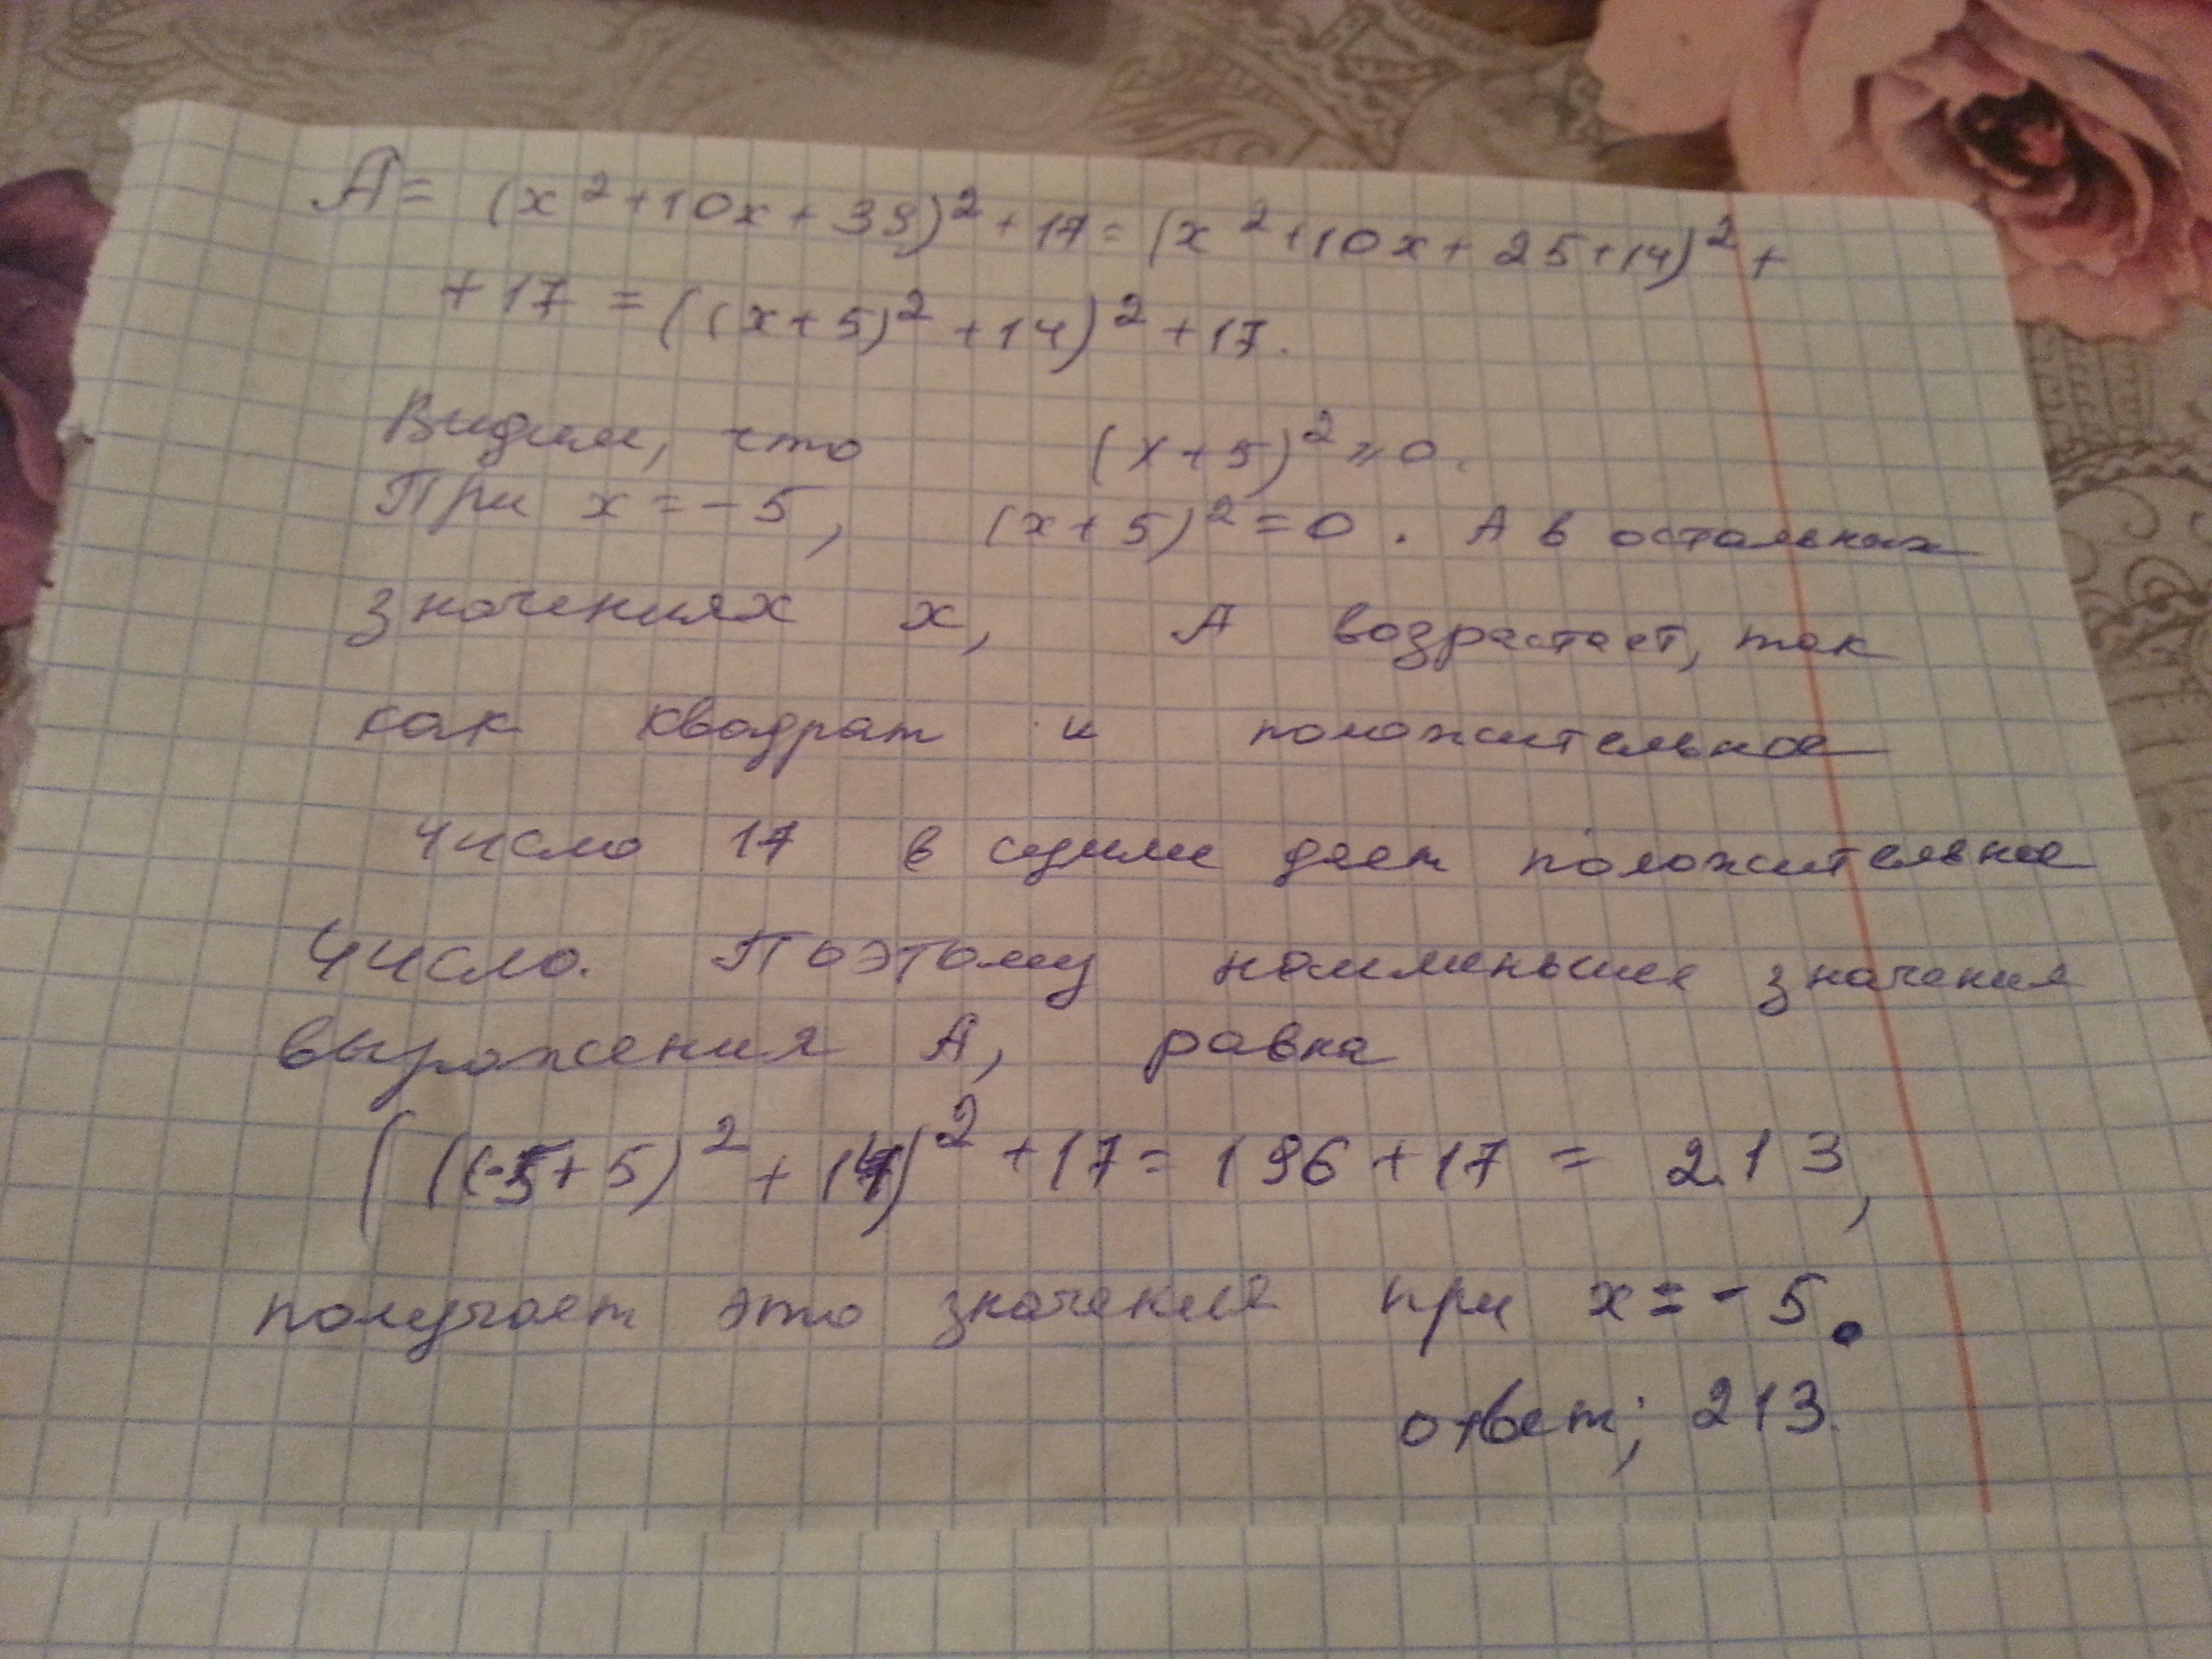 A = (x² + 10x + 39)² + 17 = (x² + 10x + 25 + 14)² +
+ 17 = ((x + 5)² + 14)² + 17.
Видим, что (x + 5)² ⩾ 0.
При x = -5, (x + 5)² = 0. А в остальных
значениях x, A возрастает, так
как квадрат и положительное
число 17 в сумме дает положительное
число. Поэтому наименьшее значения
выражения A, равна
(((-5 + 5)² + 14)² + 17 = 196 + 17 = 213,
получает это значения при x = -5.
ответ; 213.